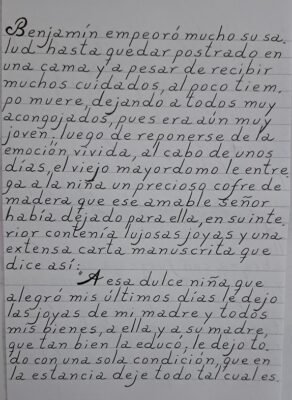 Benjamín empeoró mucho su sa.
lud hasta quedar postrado en
una cama y a pesar de recibir
muchos cuidados, al poco tiem.
po muere, dejando a todos muy
acongojados, pues era aún muy
joven; luego de reponerse de la
emoción vivida, al cabo de unos
días, el viejo mayordomo le entre.
ga a la niña un precioso cofre de
madera que ese amable señor
había dejado para ella, en su inte.
rior contenía lujosas joyas y una
extensa carta manuscrita que
dice así:
A esa dulce niña que
alegró mis últimos días le dejo
las joyas de mi madre y todos
mis bienes, a ella y a su madre,
que tan bien la educó, le dejo to.
do con una sola condición, que en
la estancia deje todo tal cual es.